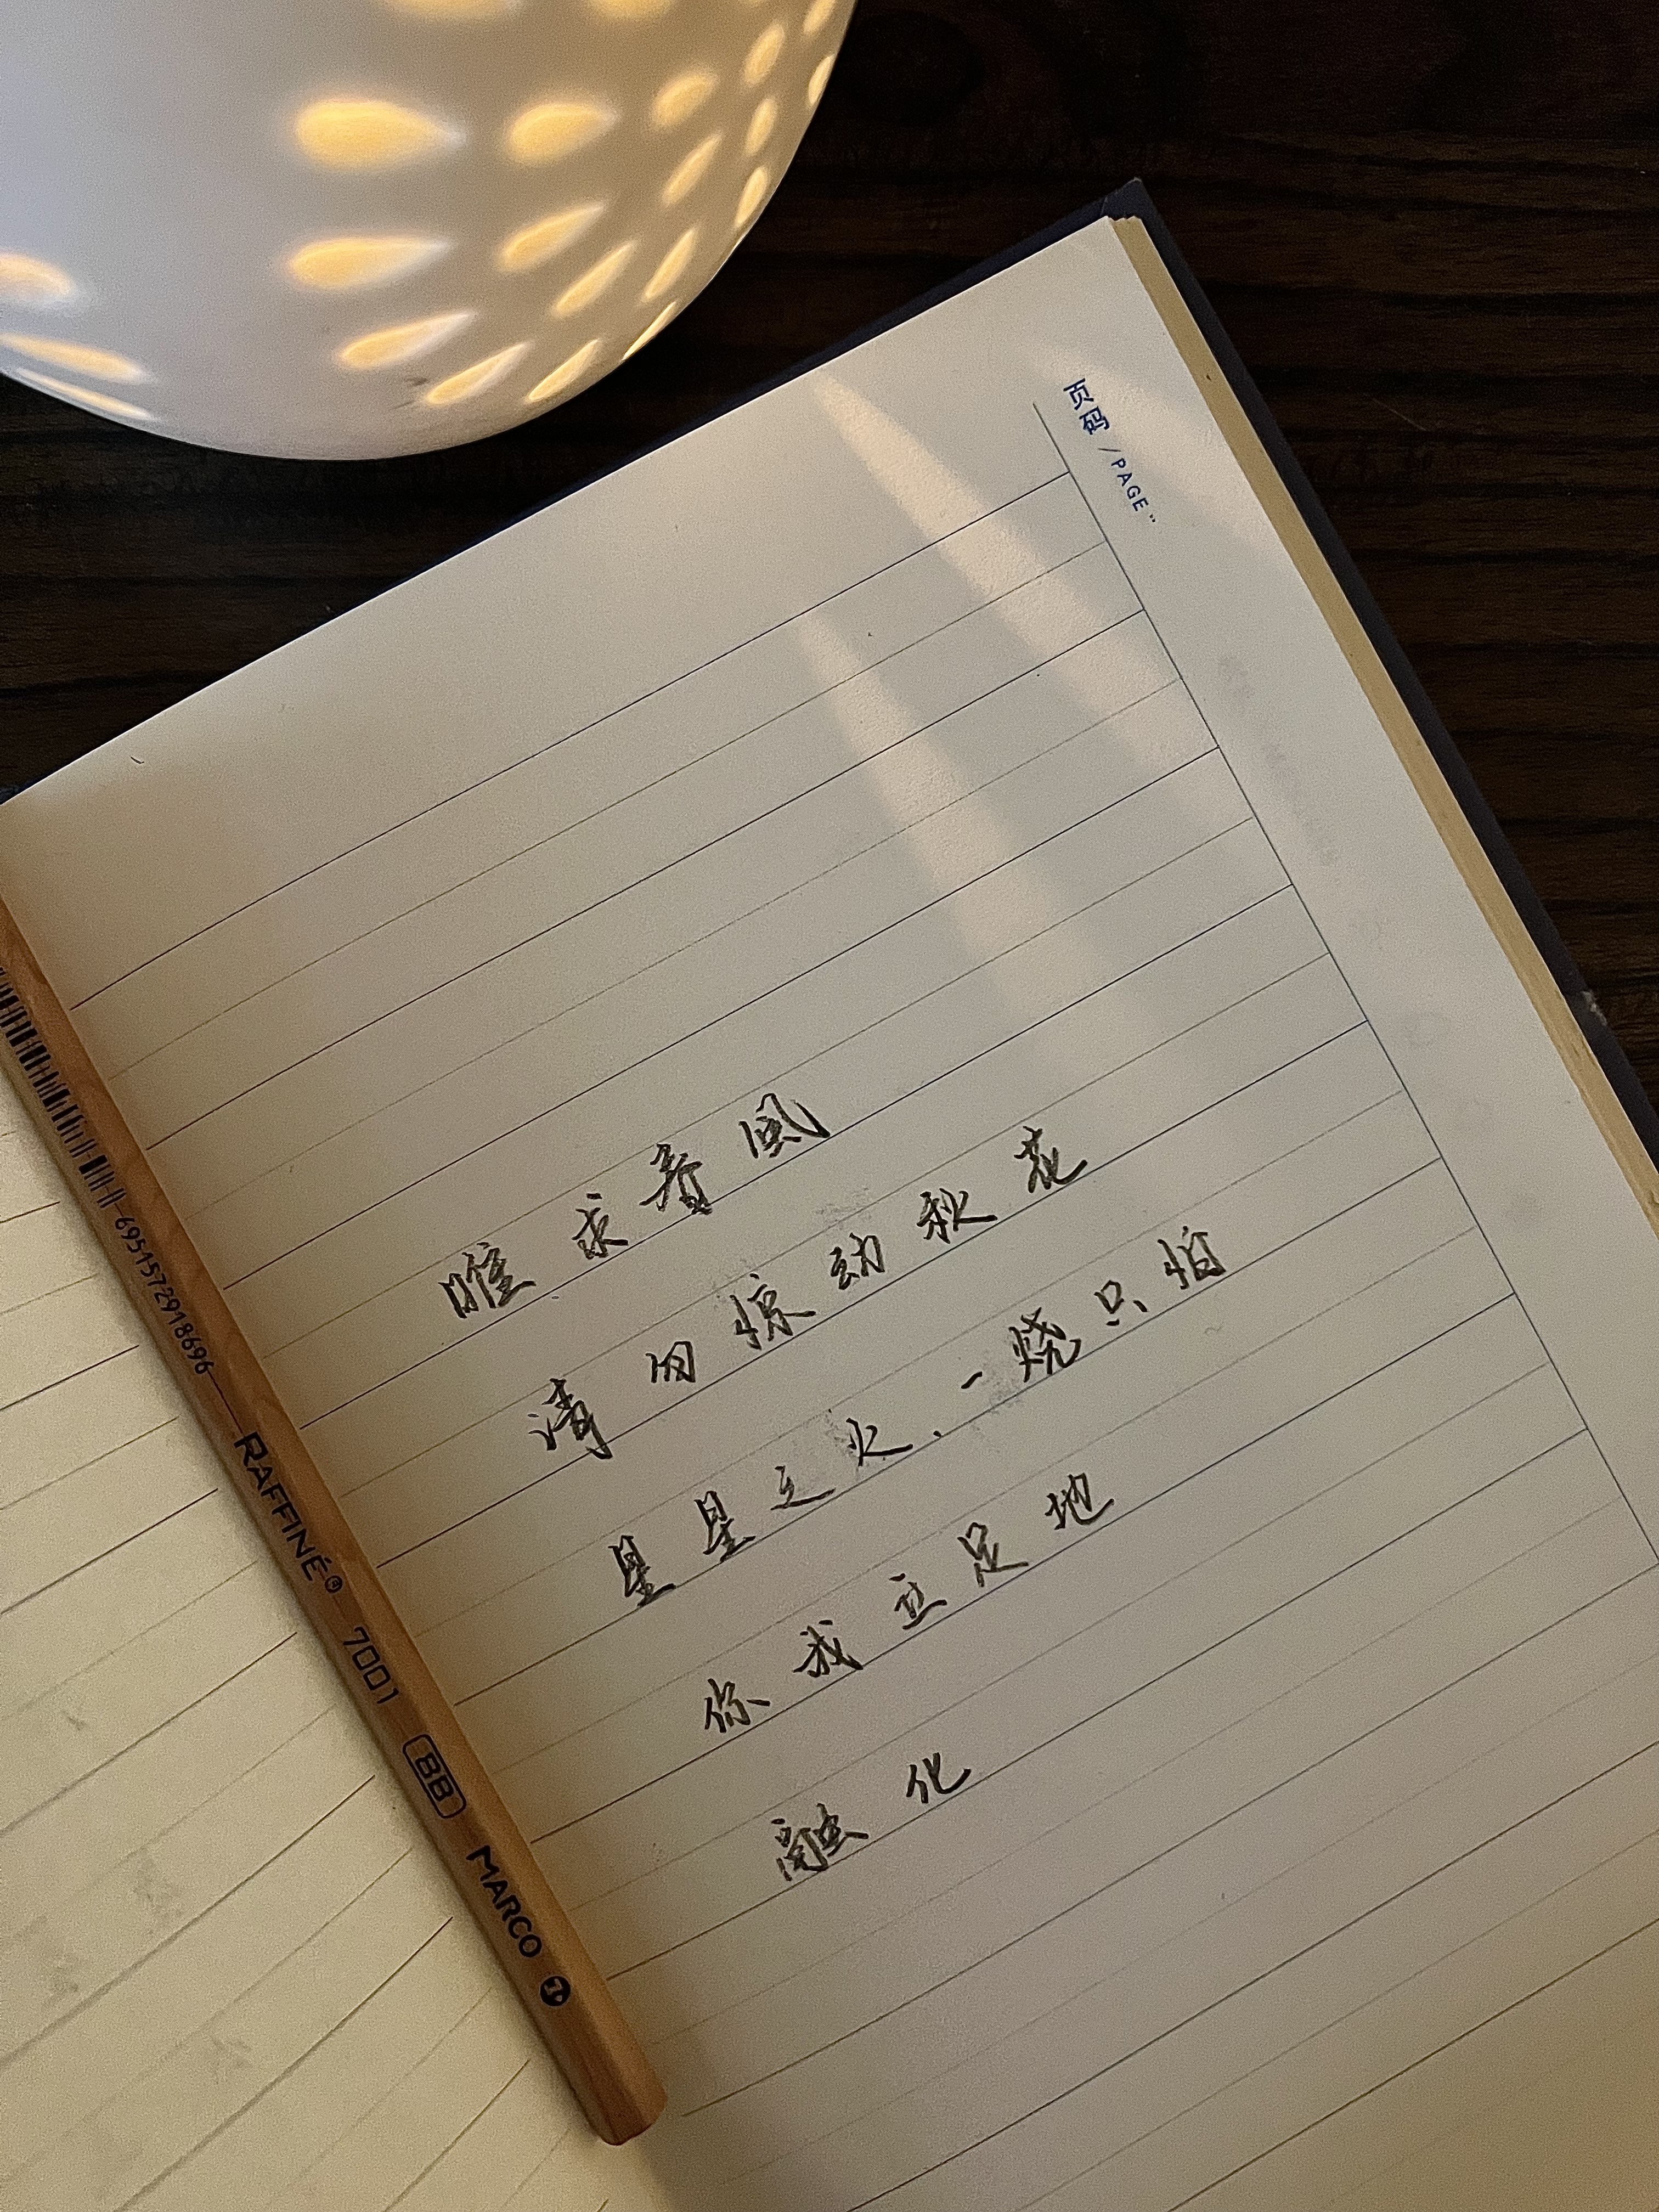 页码 / PAGE:
唯求春風
请勿惊动秋花
星星之火，一烧只怕
你我立足地
融化
6951572918696 RAFFINÉ® 7001 8B MARCO